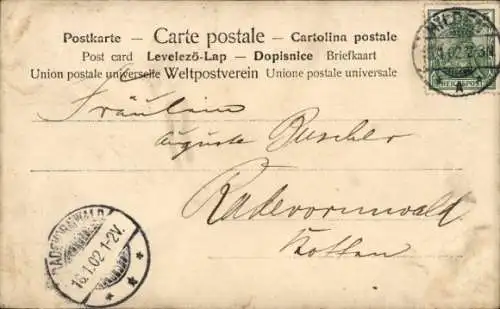 Postkarte – Carte postale – Cartolina postale
Post card – Levelező-Lap – Dopisnice Briefkaart
Union postale universelle Weltpostverein Unione postale universale
Fräulein
Auguste Buscher
Radevormwald
RADEVORMWALD
16.1.02 1-2V.